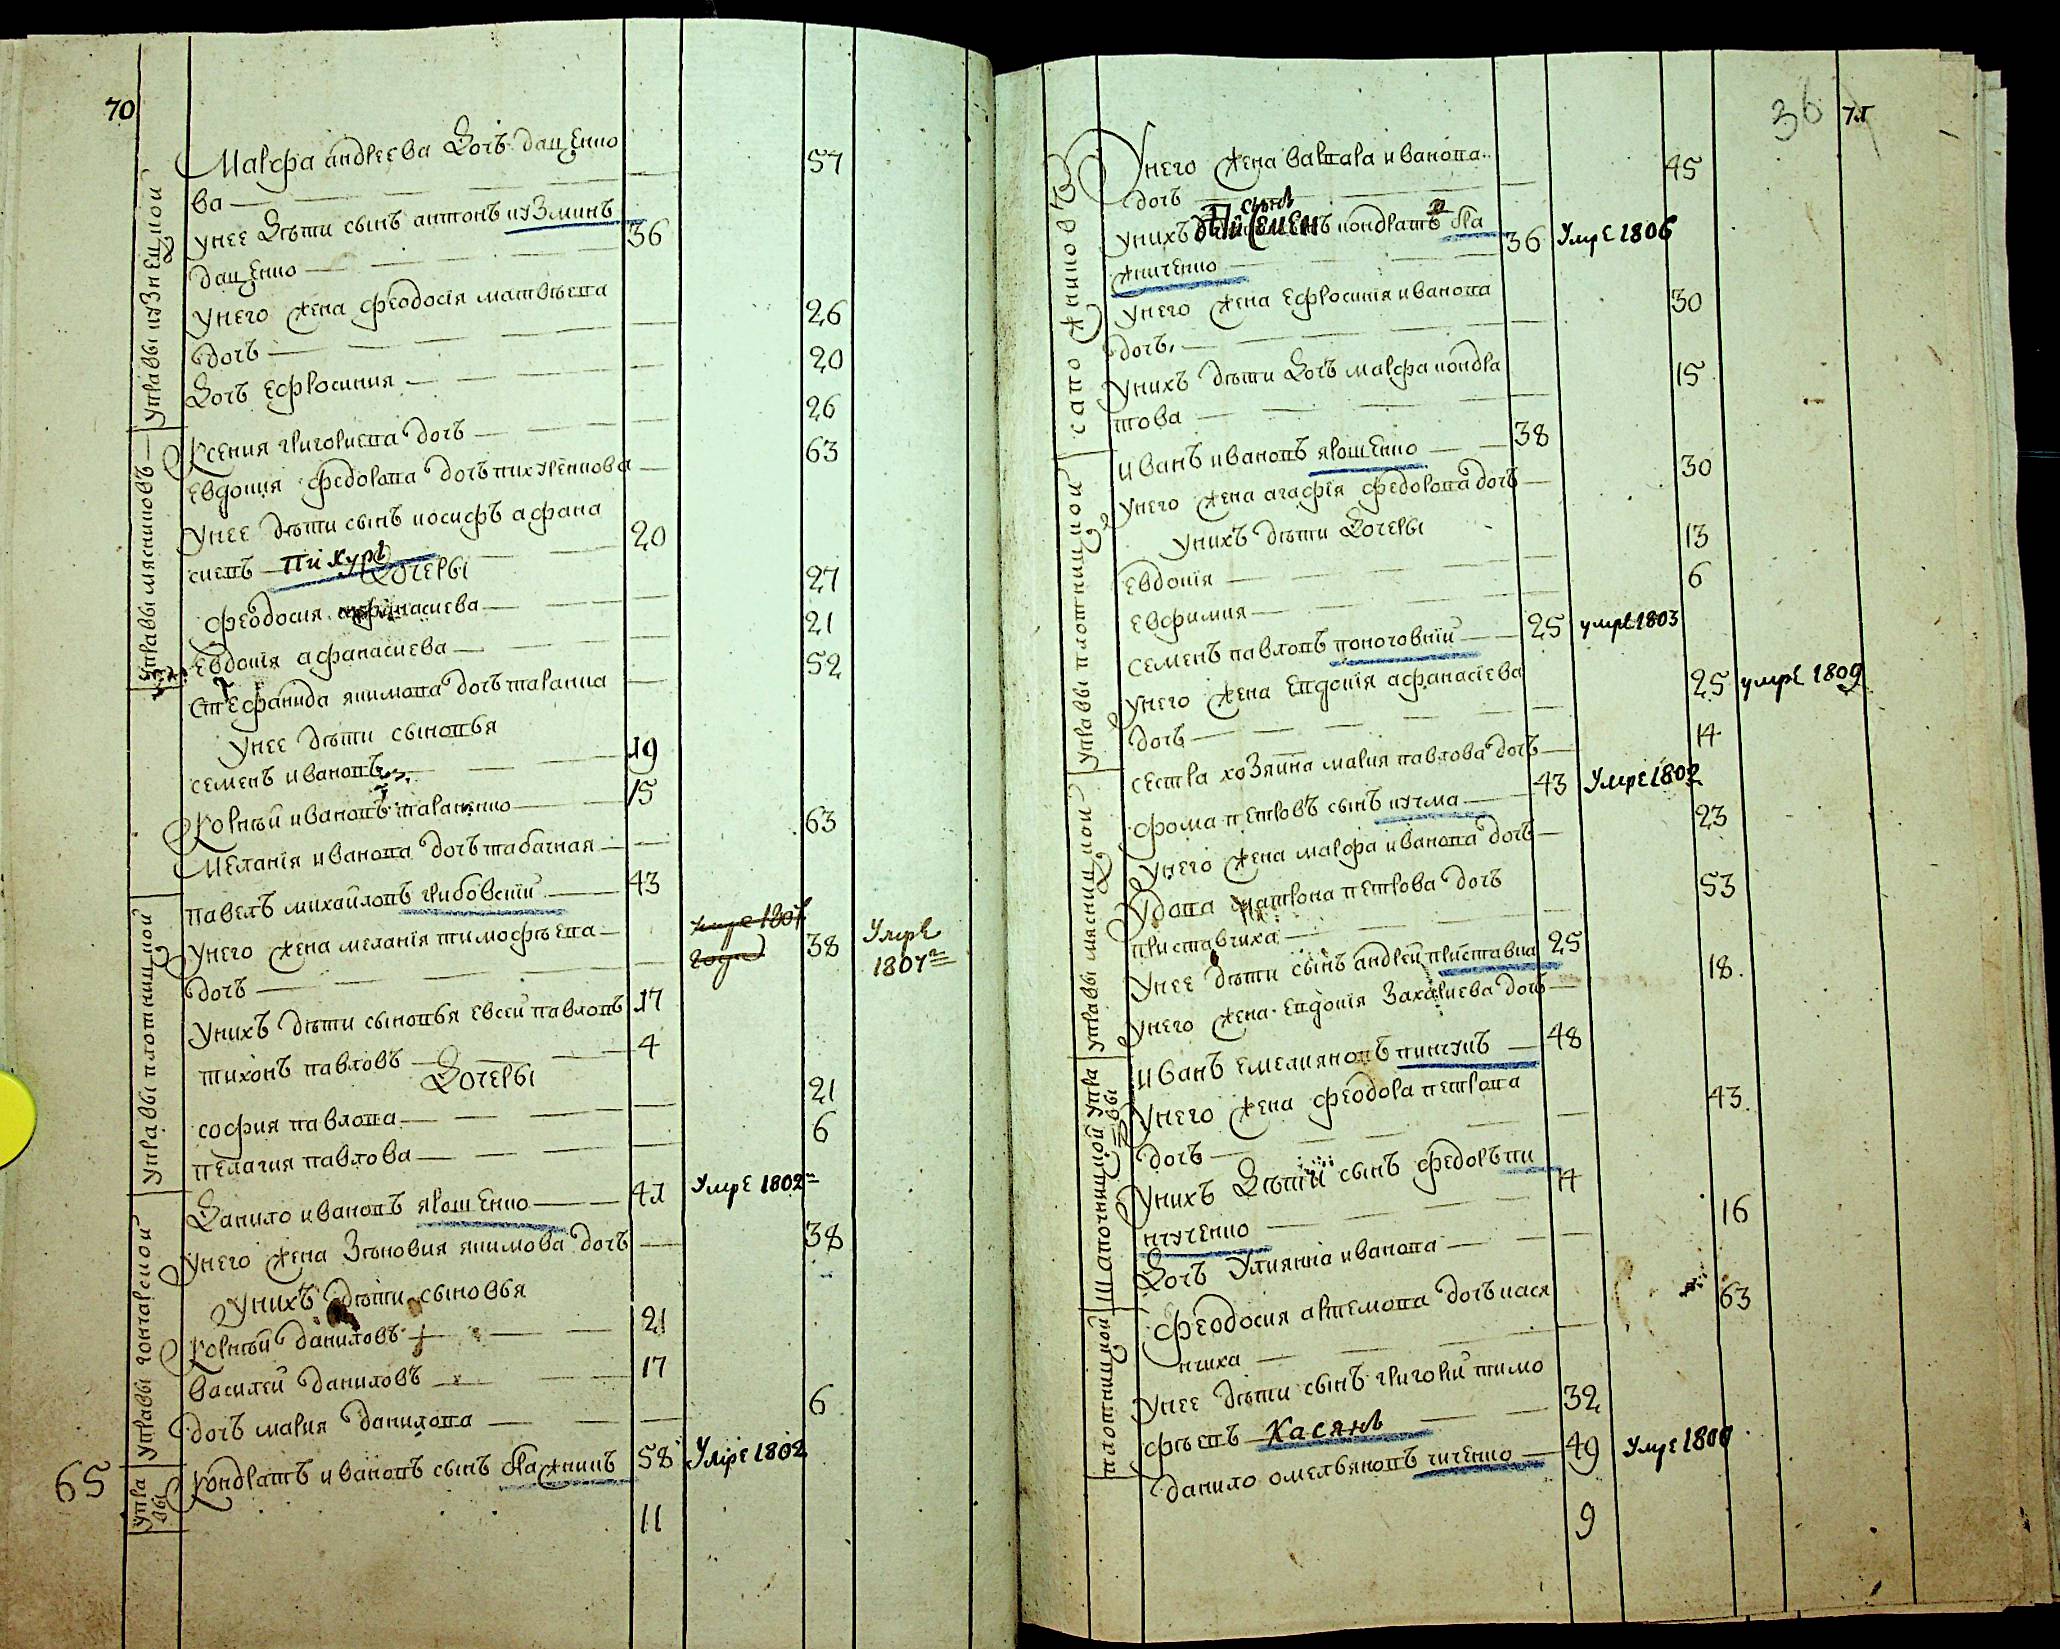 70
Управы кузнецкой
Марфа андреева дочь даценко
ва
57
унее дѣти сынъ антонъ кузминъ
даценко
36
унего жена феодосія матвѣева
дочь
26
дочь ефросиния
20
Ксения григориева дочь
26
Управы мясниковъ
евдокия федорова дочь
63
унее дѣти сынъ иосифъ афана
сиевъ Пикуръ
20
дочеры
феодосия афанасиева
27
евдокія афанасиева
21
Стефанида якимова дочь таранка
52
унее дѣти сыновья
семенъ ивановъ
19
Корнѣй ивановъ таранко
15
Меланія иванова дочь табачная
63
Управы плотницкой
павелъ михайловъ грибовскій
43
унего жена меланія тимофѣева
дочь
умре 1807
года
38
Умре
1807
унихъ дѣти сыновья евсей павловъ
17
тихонъ павловъ
4
дочеры
софия павлова
21
пелагия павлова
6
Управы гончарской
Данило ивановъ ярошенко
41
Умре 1802
унего жена Зѣновия якимова дочь
38
унихъ дѣти сыновья
Корнѣй даниловъ
21
василей даниловъ
17
дочь мария данилова
6
65
Упра
вы
Кондратъ ивановъ сынъ бражникъ
58
Умре 1802
11
36 71
сапожниковъ
Унего жена варвара иванова
дочь
45
унихъ дѣти сынъ Семенъ кондратовъ бра
жниченко
36
Умре 1806
унего жена ефросинія иванова
дочь
30
унихъ дѣти дочь марфа кондра
това
15
Управы плотницкой
Иванъ ивановъ ярошенко
38
унего жена агафія федорова дочь
30
унихъ дѣти дочеры
евдокія
13
евфимия
6
семенъ павловъ
25
умре 1803
унего жена евдокія афанасіева
дочь
25
умре 1809
сестра хозяина мария павлова дочь
14
Управы мясницкой
фома петровъ сынъ кучма
43
Умре 1802
унего жена марфа иванова дочь
23
Удова петрова дочь
приставчиха
53
унее дѣти сынъ андрей приставка
25
унего жена евдокія Захариева дочь
18
Шапочницкой упра
вы
Иванъ емелияновъ пинчукъ
48
унего жена феодора петрова
дочь
43
Унихъ дѣти сынъ федоръ пи
нчученко
14
дочь Улиянна иванова
16
плотницкой
Феодосия артемова дочь кася
нчиха
63
унее дѣти сынъ григорий тимо
фѣевъ Касянъ
32
данило омельяновъ чиченко
49
Умре 1800
9